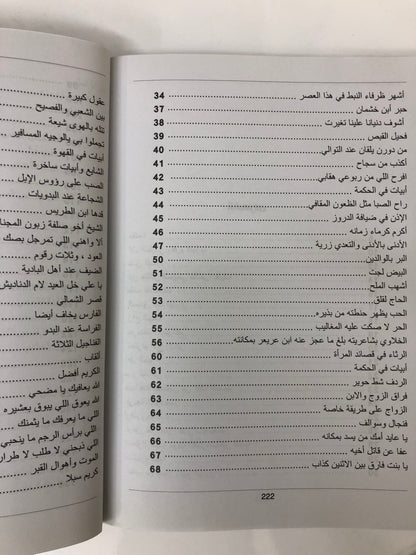 أشهر ظرفاء النبط في هذا العصر 34
حبر أبن خشمان 37
أشوف دنيانا علينا تغيرت 38
فحيل القبص 39
من دورن يلقان عند التوالي 40
أكذب من سجاح 41
افرح اللي من ربوعي هفابي 42
أبيات في الحكمة 43
راح الصبا مثل الظعون المقافي 44
الإذن في ضيافة الدروز 45
أكرم كرماء زمانه 46
الأدنى بالأدنى والتعدي زرية 47
البر بالوالدين 50
البيض لجت 51
أشهب الملح 52
الحاج لقلق 53
الحب يظهر حنطته من بذيره 54
الحر لا صكت عليه المغاليب 55
الخلاوي بشاعريته بلغ ما عجز عنه ابن عريعر بمكانته 56
الرثاء في قصائد المرأة 60
أبيات في الحكمة 61
الردف شط حوير 62
فراق الزوج والابن 63
الزواج على طريقة خاصة 64
فنجال وسوالف 65
يا عايد أمك من يسد بمكانه 66
عفا عن قاتل أخيه 67
يا بنت فارق بين الاثنين كذاب 68
222
عقول كبيرة
بين الشعبي والفصيح
تتله بالهوى شيعة
تجملوا بي يالوجيه المسافير
أبيات في القهوة
الشايع وأبيات ساخرة
الصب على رؤوس الإبل
الشجاعة عند البدويات
قدها ابن الطريس
الشيخ أخو صلفة زبون المجنا
ألا واهني اللي تمرجل بصك
العود ، وثلاث رقوم
الضيف عند أهل البادية
يا علي خل العيد لام الدناديش
قصر الشمالي
الفارس يخاف أيضا
الفراسة عند البدو
الفناجيل الثلاثة
ألقاب
الكريم أفضل
الله يعافيك يا مضحي
الله يعوق اللي يبوق بعشيره
اللي ما يعرفك ما يثمنك
اللي برأس الرجم ما ينحبي
اللي ذبحني لا طلب لا طرار
الموت وأهوال القبر
كريم سبلا